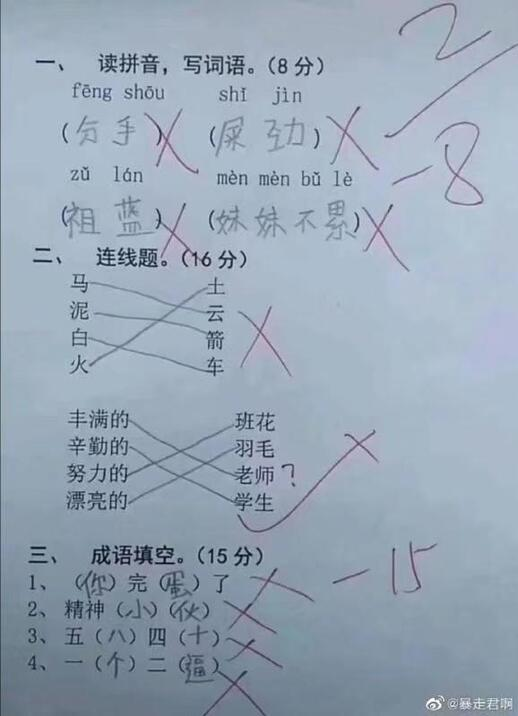 2
一、 读拼音，写词语。(8 分)
fēng shōu shǐ jìn
(分手) (屎劲)
-8
zǔ lán mèn mèn bǔ lè
(祖蓝) (妹妹不累)
二、 连线题。(16 分)
马 土
泥 云
白 箭
火 车
丰满的 班花
辛勤的 羽毛
努力的 老师?
漂亮的 学生
三、 成语填空。(15 分)
1、(你)完(蛋)了 -15
2、精神(小)(伙)
3、五(八)四(十)
4、一(个)二(逼)
@暴走君啊